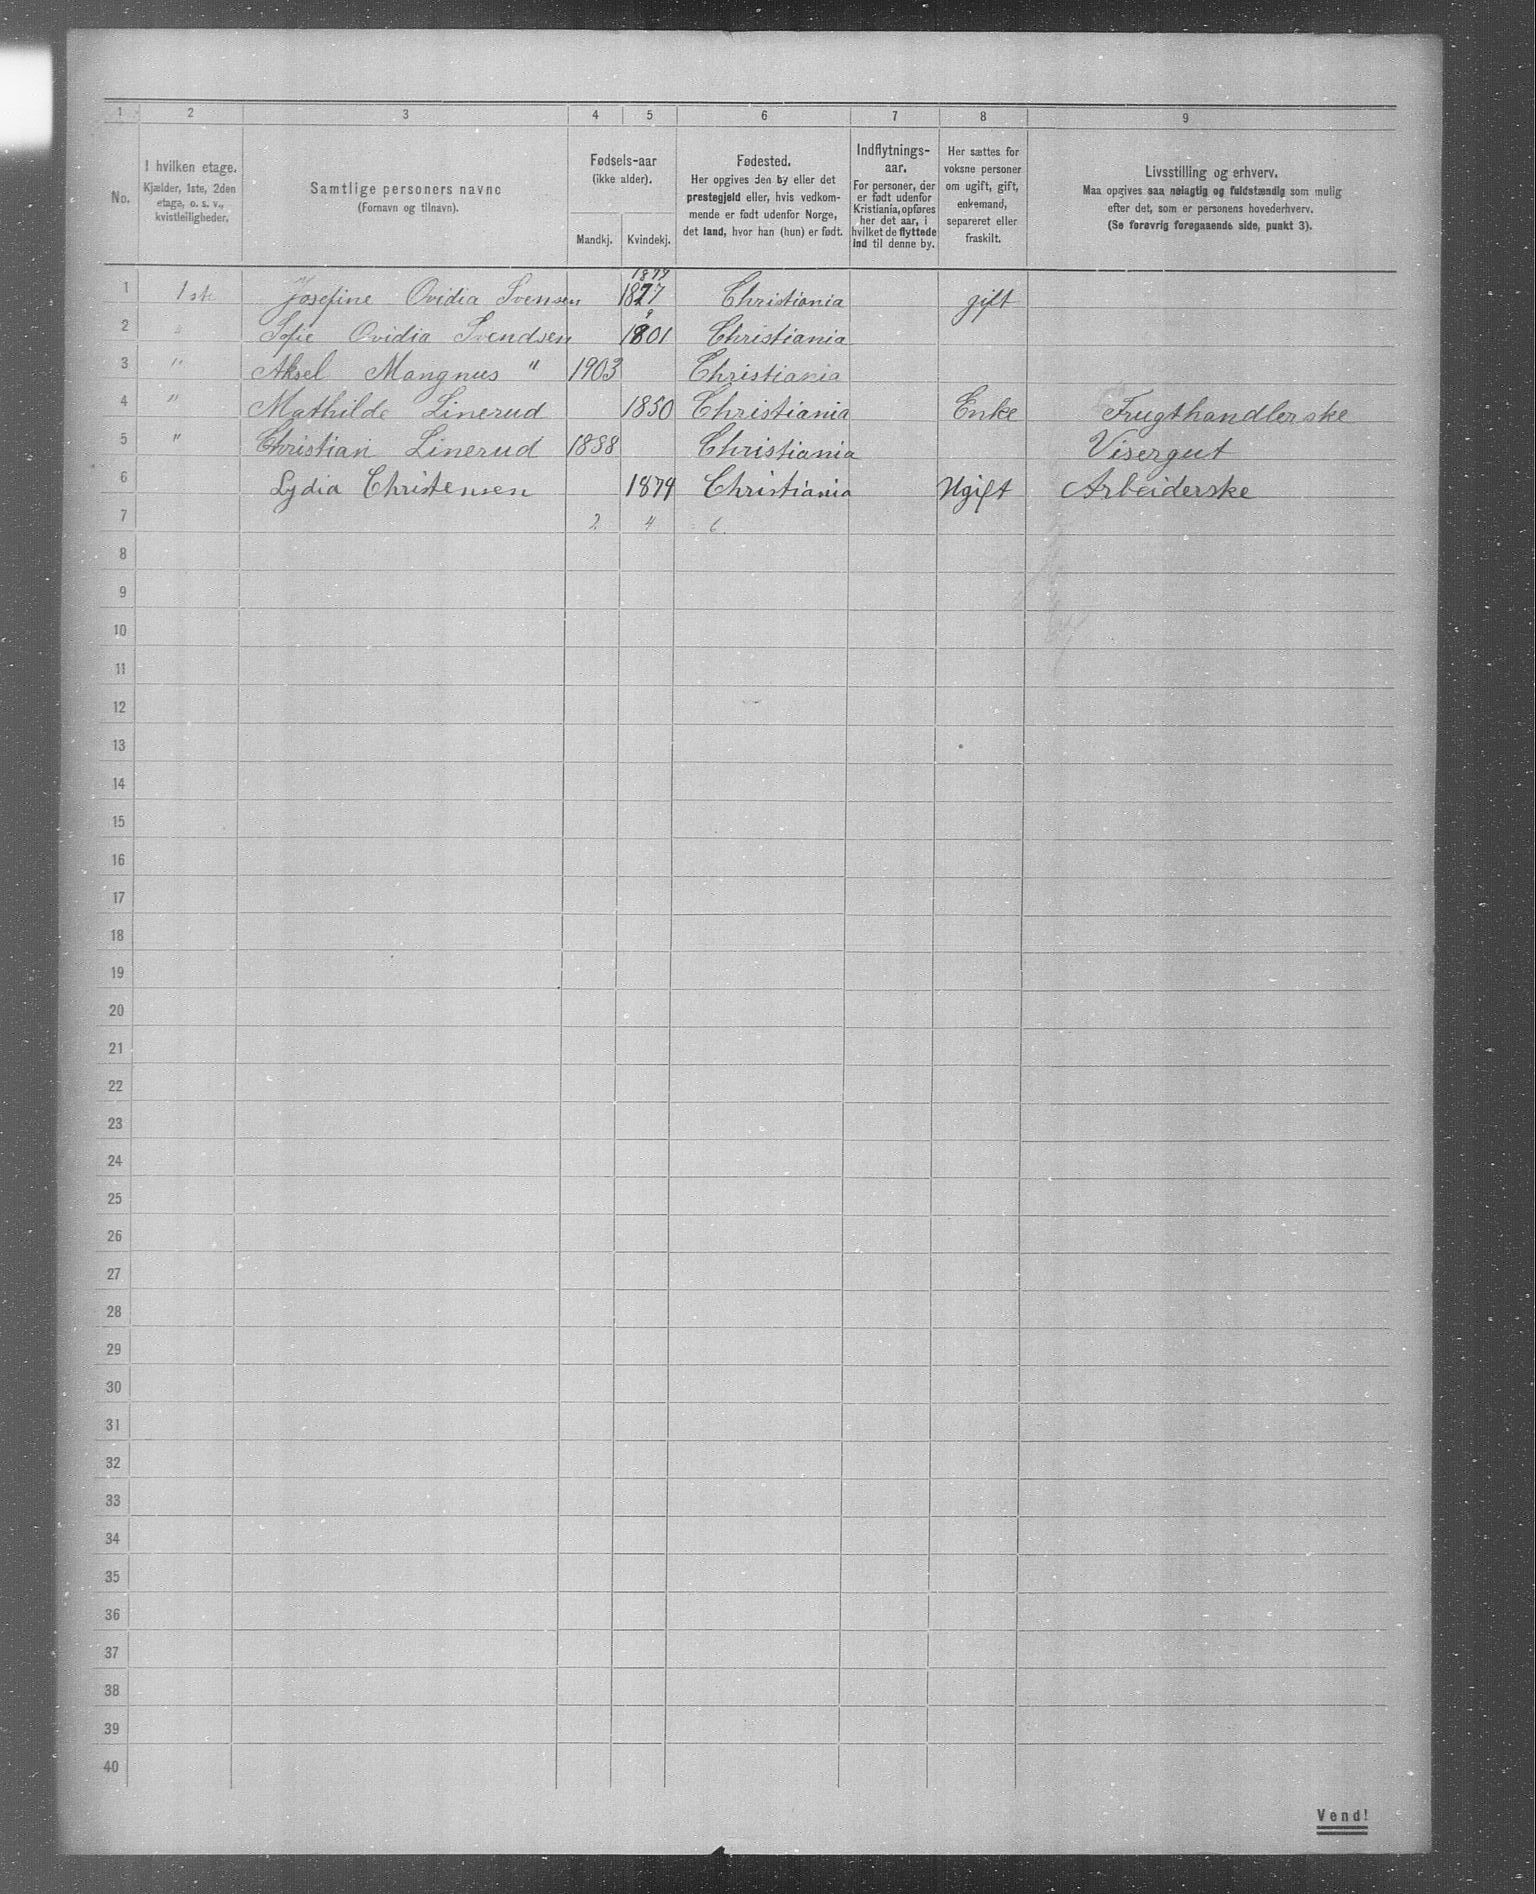 1 2 3 4 5 6 7 8 9
No.
I hvilken etage.
Kjælder, 1ste, 2den
etage, o. s. v.,
kvistleiligheder.
Samtlige personers navne
(Fornavn og tilnavn).
Fødsels-aar
(ikke alder).
Mandkj. Kvindekj.
Fødested.
Her opgives den by eller det
prestegjeld eller, hvis vedkom-
mende er født udenfor Norge,
det land, hvor han (hun) er født.
Indflytnings-
aar.
For personer, der
er født udenfor
Kristiania, opføres
her det aar, i
hvilket de flyttede
ind til denne by.
Her sættes for
voksne personer
om ugift, gift,
enkemand,
separeret eller
fraskilt.
Livsstilling og erhverv.
Maa opgives saa nøiagtig og fuldstændig som mulig
efter det, som er personens hovederhverv.
(Se forøvrig foregaaende side, punkt 3).
1877
1 1ste Josefine Ovidia Svensen 1877 Christiania gift
9
2 " Sofie Ovidia Svendsen 1801 Christiania
3 " Aksel Mangnus " 1903 Christiania
4 " Mathilde Linerud 1850 Christiania Enke Frugthandlerske
5 " Christian Linerud 1888 Christiania Visergut
6 Lydia Christensen 1874 Christiania Ugift Arbeiderske
7 2 4 6
8
9
10
11
12
13
14
15
16
17
18
19
20
21
22
23
24
25
26
27
28
29
30
31
32
33
34
35
36
37
38
39
40
Vend!